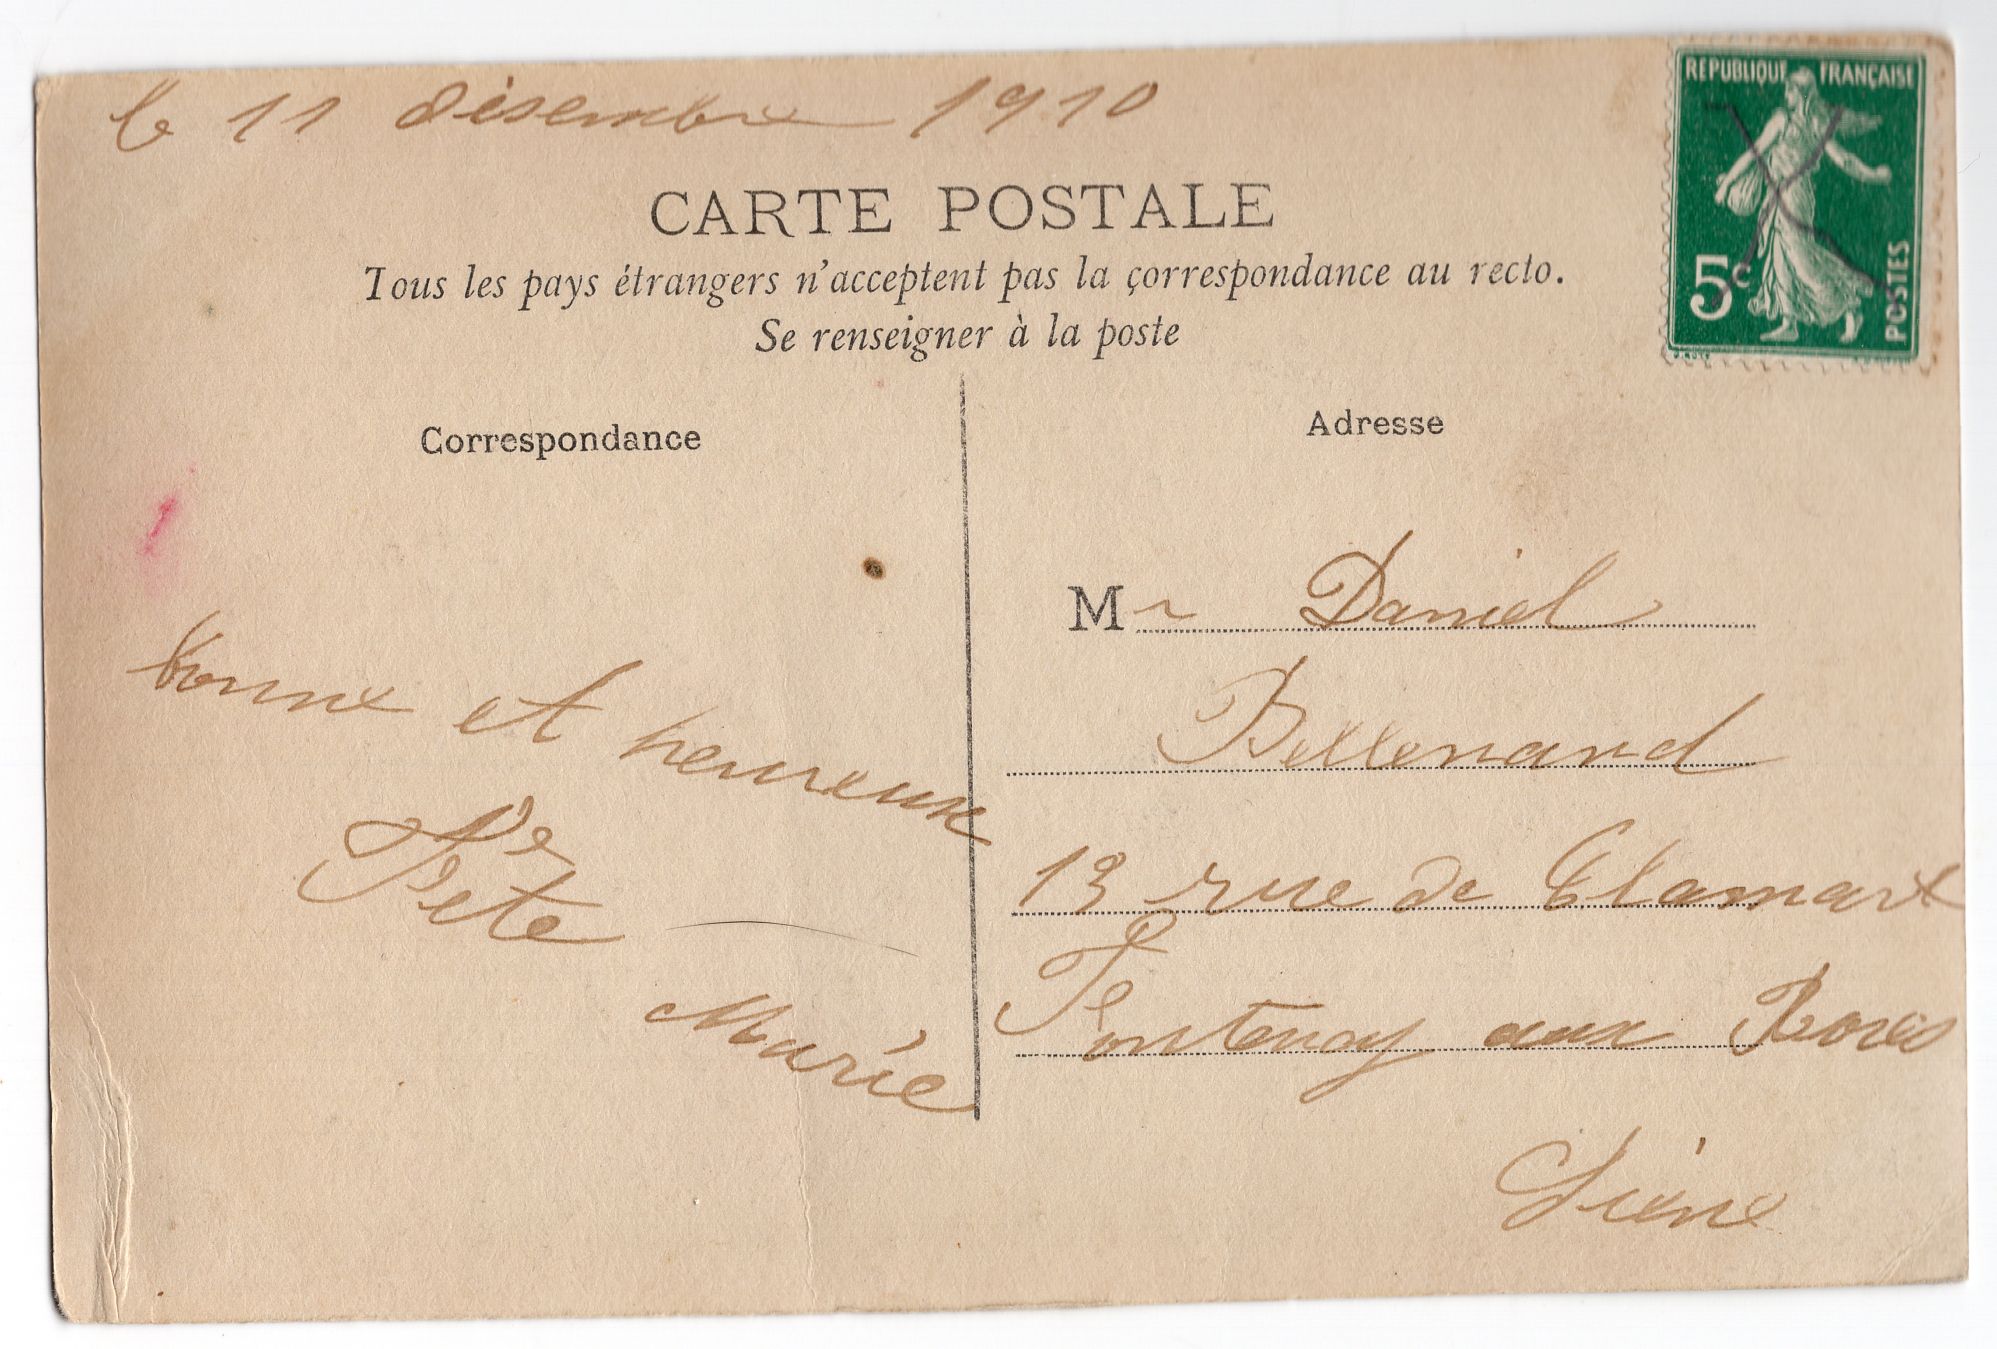 le 11 désembre 1910
REPUBLIQUE FRANÇAISE
5c
POSTES
CARTE POSTALE
Tous les pays étrangers n'acceptent pas la çorrespondance au recto.
Se renseigner à la poste
Correspondance
bonne et heureuse
Fête
Marie
Adresse
Mr Daniel
Bellenand
13 rue de Clamart
Fontenay aux Roses
Siene